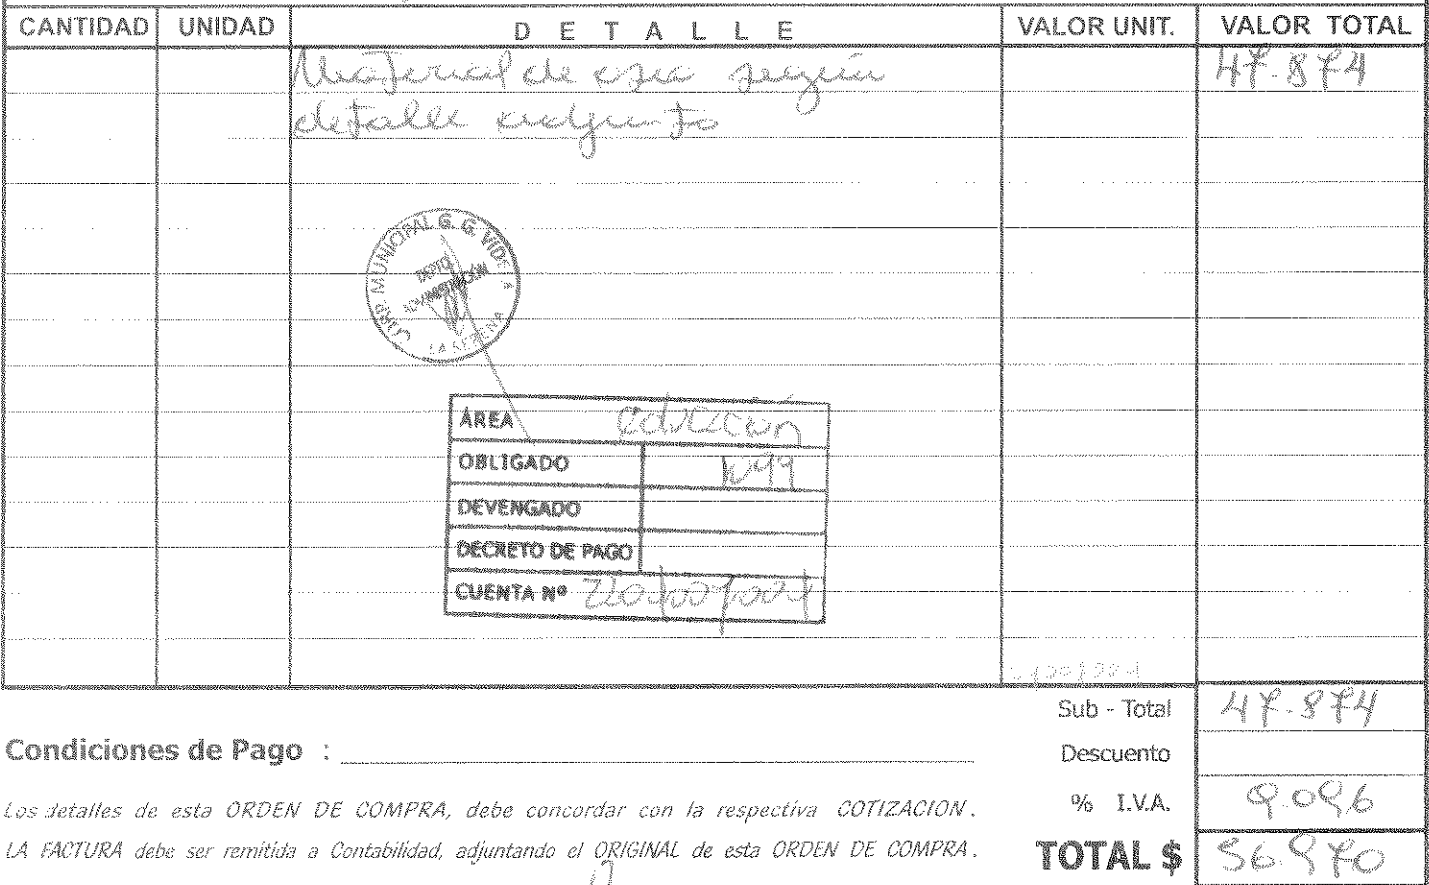 CANTIDAD UNIDAD DETALLE VALOR UNIT. VALOR TOTAL
Material de aseo según 47.874
detalle adjunto
CORP. MUNICIPAL G. G. VIDELA
DEPTO.
ADMINISTRACIÓN
LA SERENA
ÁREA educación
OBLIGADO 1099
DEVENGADO
DECRETO DE PAGO
CUENTA Nº
Sub - Total 47.874
Condiciones de Pago : Descuento
Los detalles de esta ORDEN DE COMPRA, debe concordar con la respectiva COTIZACION. % I.V.A. 9.096
LA FACTURA debe ser remitida a Contabilidad, adjuntando el ORIGINAL de esta ORDEN DE COMPRA. TOTAL $ 56.970